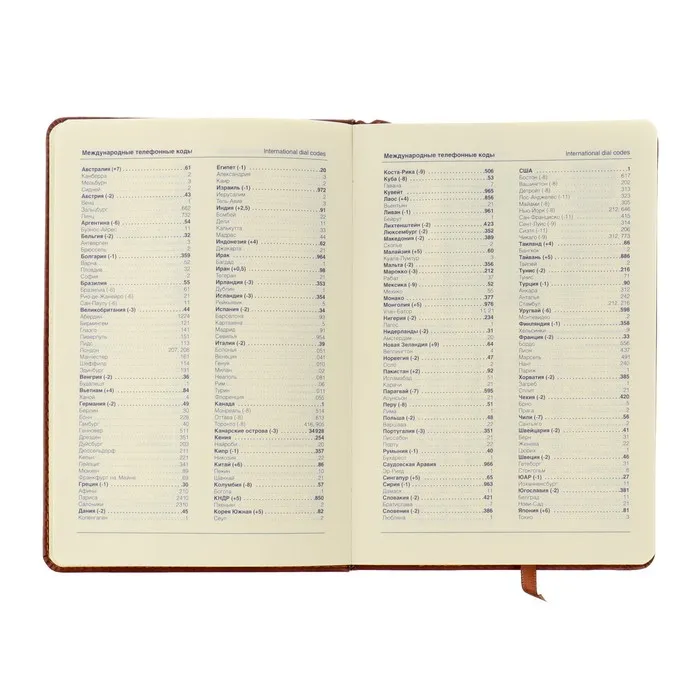 Международные телефонные коды International dial codes
Австралия (+7) 61
Канберра 2
Мельбурн 3
Сидней 2
Австрия (-2) 43
Вена 1
Зальцбург 662
Линц 732
Аргентина (-6) 54
Буэнос-Айрес 11
Бельгия (-2) 32
Антверпен 3
Брюссель 2
Болгария (-1) 359
Варна 52
Пловдив 32
София 2
Бразилия 55
Бразилиа (-6) 61
Рио-де-Жанейро (-6) 21
Сан-Паулу (-6) 11
Великобритания (-3) 44
Абердин 1224
Бирмингем 121
Глазго 141
Ливерпуль 151
Лидс 113
Лондон 207, 208
Манчестер 161
Шеффилд 114
Эдинбург 131
Венгрия (-2) 36
Будапешт 1
Вьетнам (+4) 84
Ханой 4
Германия (-2) 49
Берлин 30
Бонн 228
Гамбург 40
Ганновер 511
Дрезден 351
Дюссельдорф 211
Кельн 221
Лейпциг 341
Мюнхен 89
Франкфурт на Майне 69
Греция (-1) 30
Афины 210
Лариса 2410
Салоники 2310
Дания (-2) 45
Копенгаген
Египет (-1) 20
Александрия 3
Каир 2
Израиль (-1) 972
Иерусалим 2
Тель-Авив 3
Индия (+2,5) 91
Бомбей 22
Дели 11
Калькутта 33
Мадрас 44
Индонезия (+4) 62
Джакарта 21
Ирак 964
Багдад 1
Иран (+0,5) 98
Тегеран 21
Ирландия (-3) 353
Дублин 1
Исландия (-3) 354
Рейкьявик 5
Испания (-2) 34
Барселона 93
Мадрид 91
Севилья 954
Италия (-2) 39
Болонья 051
Венеция 041
Генуя 010
Милан 02
Неаполь 081
Рим 06
Турин 011
Флоренция 055
Канада 1
Монреаль (-8) 514
Оттава (-8) 613
Торонто (-8) 416, 905
Канарские острова (-3) 34928
Кения 254
Найроби 20
Кипр (-1) 357
Никосия 22
Китай (+5) 86
Пекин 10
Шанхай 21
Колумбия (-8) 57
Богота 1
КНДР (+5) 850
Пхеньян 2
Корея Южная (+5) 82
Сеул 2
Международные телефонные коды International dial codes
Коста-Рика (-9) 506
Куба (-8) 53
Гавана 7
Кувейт 965
Лаос (+4) 856
Вьентьян 21
Ливан (-1) 961
Бейрут 1
Лихтенштейн (-2) 423
Люксембург (-2) 352
Македония (-2) 389
Скопье 2
Малайзия (+5) 60
Куала-Лумпур 3
Мальта (-2) 356
Марокко (-3) 212
Рабат 37
Мексика (-9) 52
Мехико 55
Монако 377
Монголия (+5) 976
Улан-Батор 11, 21
Нигерия (-2) 234
Лагос 1
Нидерланды (-2) 31
Амстердам 20
Новая Зеландия (+9) 64
Веллингтон 4
Норвегия (-2) 47
Осло 2
Пакистан (+2) 92
Исламабад 51
Карачи 21
Парагвай (-7) 595
Асунсьон 21
Перу (-8) 51
Лима 1
Польша (-2) 48
Варшава 22
Португалия (-3) 351
Лиссабон 21
Порту 22
Румыния (-1) 40
Бухарест 1
Саудовская Аравия 966
Эр-Рияд 1
Сингапур (+5) 65
Сирия (-1) 963
Дамаск 11
Словакия (-2) 421
Братислава 2
Словения (-2) 386
Любляна 1
США 1
Бостон (-8) 617
Вашингтон (-8) 202
Детройт (-8) 313
Лос-Анджелес (-11) 323
Майами (-8) 305
Нью-Йорк (-8) 212, 646
Сан-Франциско (-11) 415
Сент-Луис (-9) 314
Сиэтл (-11) 206
Чикаго (-9) 312, 773
Таиланд (+4) 66
Бангкок 2
Тайвань (+5) 886
Тайпей 2
Тунис (-2) 216
Тунис 71
Турция (-1) 90
Анкара 312
Анталья 242
Стамбул 212, 216
Уругвай (-6) 598
Монтевидео 2
Финляндия (-1) 358
Хельсинки 9
Франция (-2) 33
Бордо 556
Лион 437
Марсель 491
Нант 240
Париж 1
Хорватия (-2) 385
Загреб 1
Сплит 21
Чехия (-2) 420
Брно 5
Прага 2
Чили (-7) 56
Сантьяго 2
Швейцария (-2) 41
Берн 31
Женева 22
Цюрих 1
Швеция (-2) 46
Гетеборг 31
Стокгольм 8
ЮАР (-1) 27
Йоханнесбург 11
Югославия (-2) 381
Белград 11
Нови-Сад 21
Япония (+6) 81
Токио 3